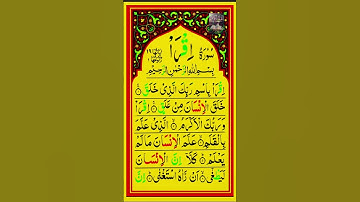 سُوْرَةُ اِقْرَاْ
بِسْمِ اللهِ الرَّحْمٰنِ الرَّحِيْمِ
اِقْرَاْ بِاسْمِ رَبِّكَ الَّذِيْ خَلَقَ ۝
خَلَقَ الْاِنْسَانَ مِنْ عَلَقٍ ۝ اِقْرَاْ
وَرَبُّكَ الْاَكْرَمُ ۝ الَّذِيْ عَلَّمَ
بِالْقَلَمِ ۝ عَلَّمَ الْاِنْسَانَ مَا لَمْ
يَعْلَمْ ۝ كَلَّاۤ اِنَّ الْاِنْسَانَ
لَيَطْغٰى ۝ اَنْ رَّاٰهُ اسْتَغْنٰى ۝ اِنَّ